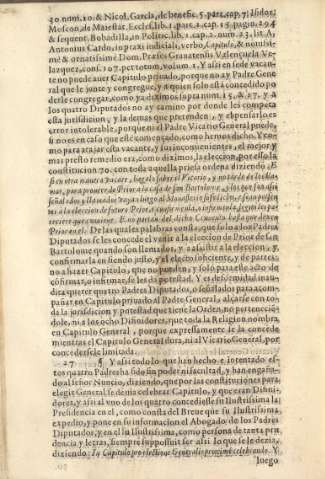 30 num. 10. & Nicol. Garcia, de benefic. 5. part. cap. 7. Isidor.
Moscon, de Maiestat. Eccles. lib. 1. par. 2. cap. 15. pagin. 294
& sequent. Bobadilla, in Politic. lib. 1. cap. 2. num. 23. lit. A.
Antonius Cardo, in praxi iudiciali, verbo, Capitulo, & nouissi-
mè & ornatissimè, Dom. Præses Granatensis Valençuela Ve-
lazquez, cons. 107. per totum, volum. 2. Y assi en sede vacan-
te no puede auer Capitulo priuado, porque no ay Padre Gene-
ral que le junte y congregue, y a quien solo està concedido po-
derle congregar, como ya diximos supra num. 15. & 27. y a
los quatro Diputados no ay camino por donde les competa
esta jurisdicion, y la demas que pretenden, y el pensarlo es
error intolerable, porque ni el Padre Vicario General puede,
si no es en caso que esté començado, como hemos dicho. Y re-
mo para atajar esta vacante, y sus inconuenientes, el mejor y
mas presto remedio era, como diximos, la eleccion, por esso la
constitucion 70. con toda aquella priessa ordena diziendo: E
si en otro manera vacare, hagalo saber al Vicario, y notario de los Diffini-
dores, para proueer de Prior a la casa de san Bartolome, a los que son assi
señalados
mos a la eleccion de futuro Prior
E no partan del dicho Conuento hasta que denen
Prior en el. De las quales palabras consta, que solo a los Padres
Diputados se les concede el venir a la eleccion de Prior de san
Bartolome quando son llamados, y a assistir a la eleccion, y
confirmarla en siendo justo, y al electo suficiente, y de partes:
no a hazer Capitulo, que no pueden; y solo para este acto de
cōfirmar, o infirmar, se les da potestad. Y es desorden inau-
dita querer quatro Padres Diputados, o señalados para acom-
pañar en Capitulo priuado al Padre General, alçarse con to-
da la jurisdicion y potestad que tiene la Orden, no pertenecien-
dole, ni a los ocho Difinidores, que toda la Religion nombra
en Capitulo General, porque expressamente se la concede
mientras el Capitulo General dura, ni al Vicario General, por
concedersele limitada.
27 ¶ Y assi todo lo que han hecho e intentado es-
tos quatro Padres ha sido sin poder ni facultad, y han engaña-
do al señor Nuncio, diziendo, que por las constituciones para
elegir General se deuia celebrar Capitulo, y que eran Difini-
dores, y assi al vno de los quatro concediesse su Ilustrissima la
Presidencia en el, como consta del Breue que su Ilustrissima
expedio, y pone en su informacion el Abogado de los Padres
Diputados, y en el la Ilustrissima, como persona de tanta pru-
dencia y letras, siempre suppossuit ser assi lo que se le dezia,
diziendo: In Capitulo pro electione Generalis proximè celebrando. Y
luego